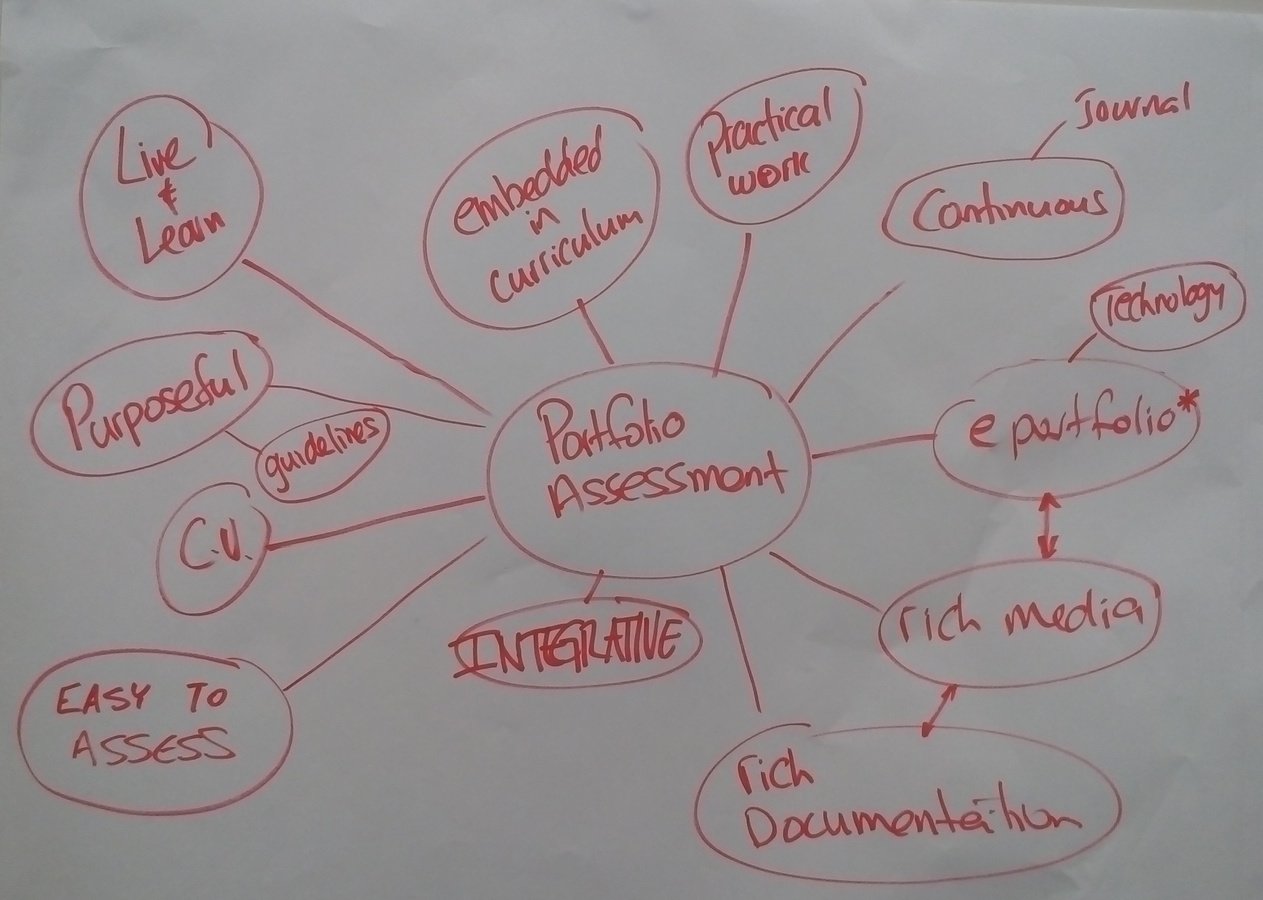 Live
&
Learn
embedded
in
curriculum
Practical
work
Journal
Continuous
Technology
Purposeful
guidelines
Portfolio
Assessment
e portfolio*
C.V.
INTEGRATIVE
rich media
EASY TO
ASSESS
rich
Documentation